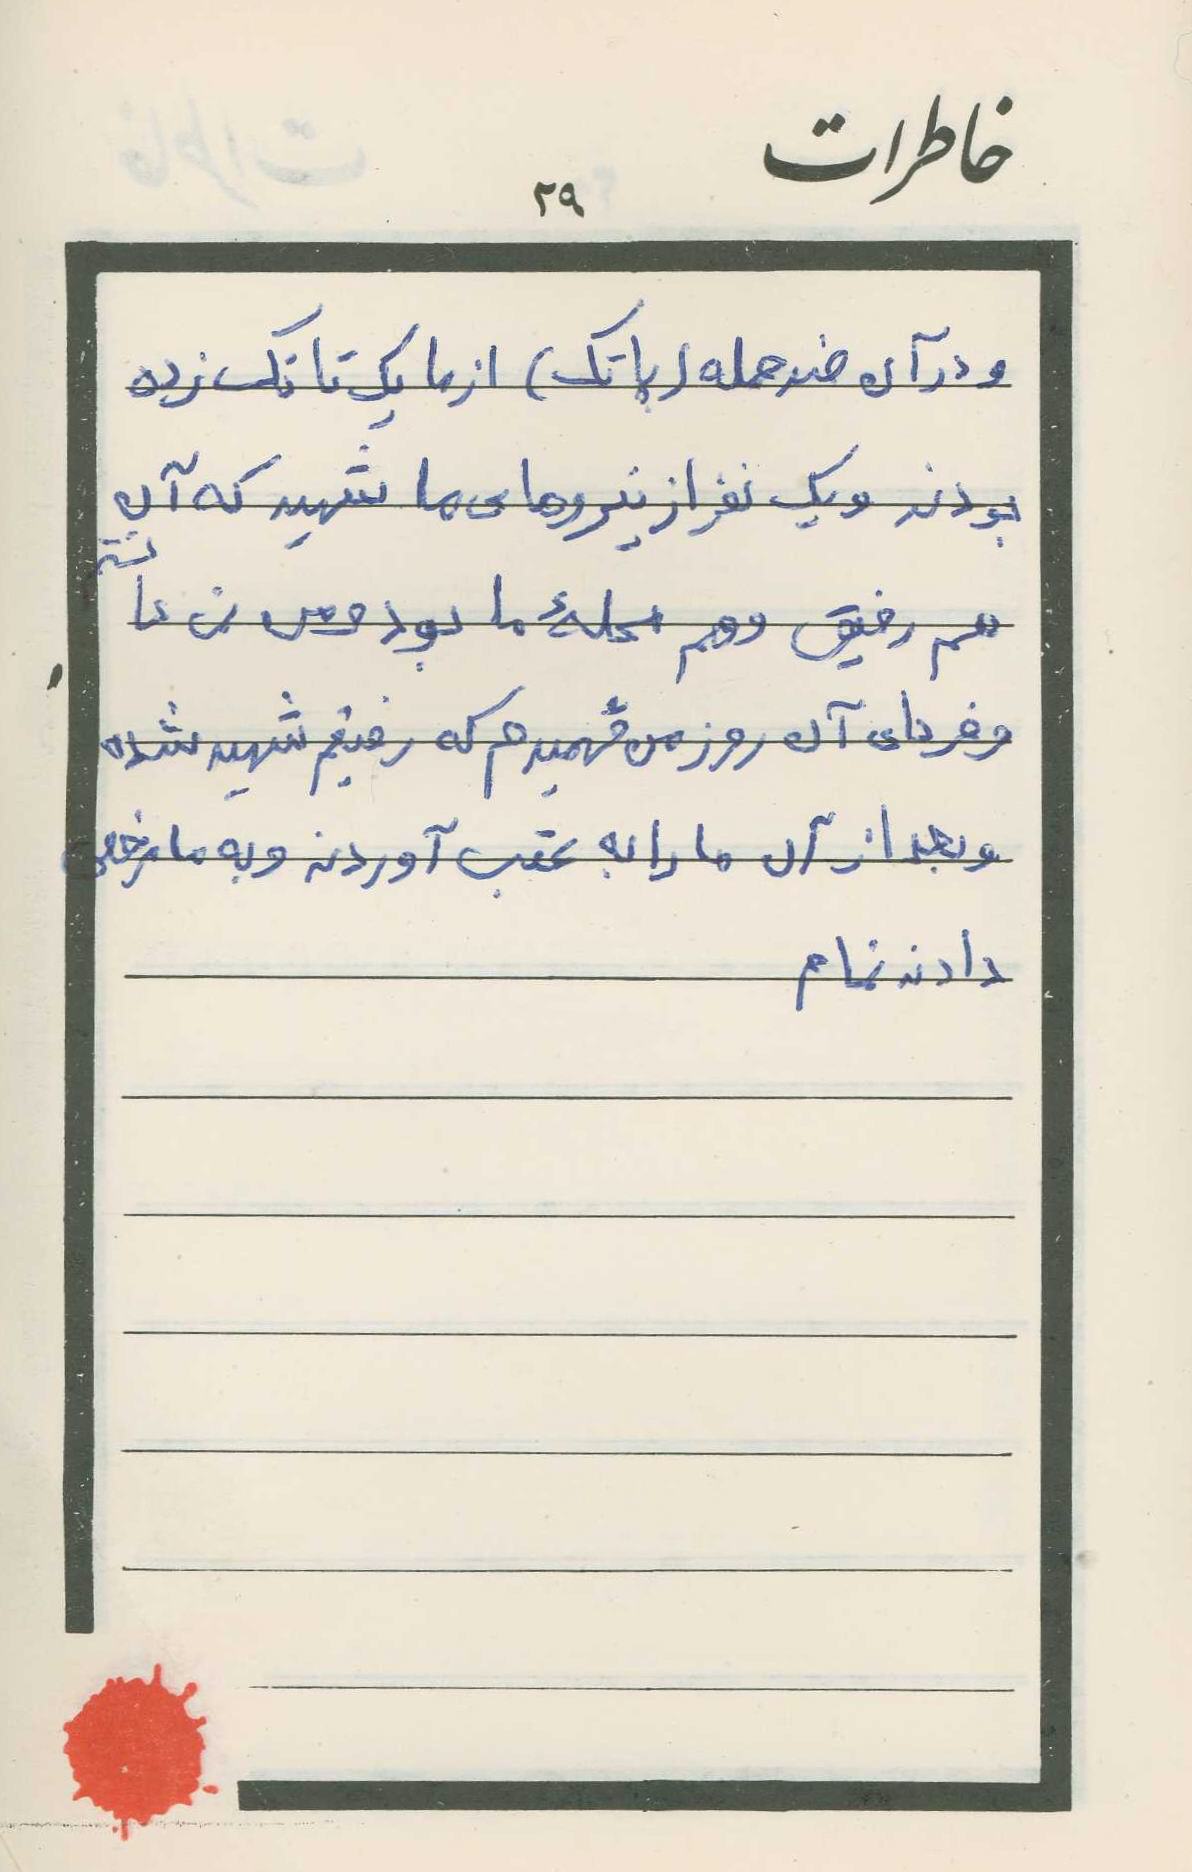 خاطرات
۲۹
و در آن ضد حمله (پاتک) از ما یک تانک زده
بودند و یک نفر از نیروهای ما شهید که آن
هم رفیق و هم محلهٔ ما بود و من
و فردای آن روز من فهمیدم که رفیقم شهید شده
و بعد از آن ما را به عقب آوردند و به ما مرخصی
دادند تمام